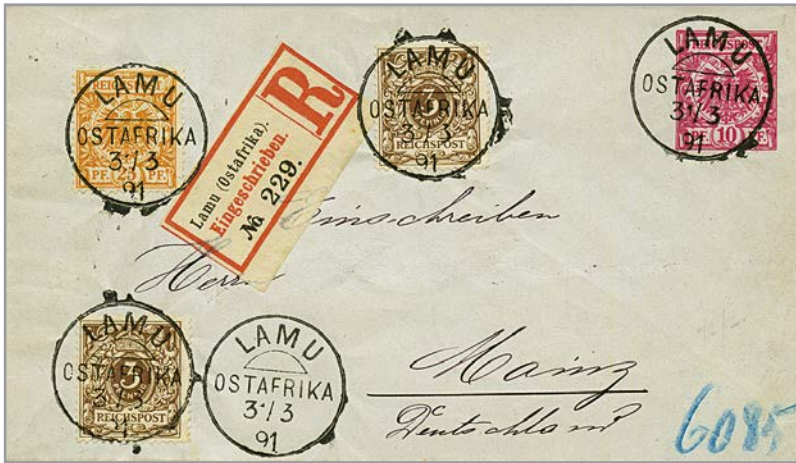 LAMU
OSTAFRIKA
31/3
91
REICHSPOST
PF. 25 PF.
Lamu (Ostafrika).
Eingeschrieben.
No. 229.
R
LAMU
OSTAFRIKA
31/3
91
3
REICHSPOST
LAMU
OSTAFRIKA
31/3
91
REICHSPOST
PF. 10 PF.
Einschreiben
Herrn
LAMU
OSTAFRIKA
31/3
91
3
REICHSPOST
LAMU
OSTAFRIKA
31/3
91
Mainz
Deutschland
6085